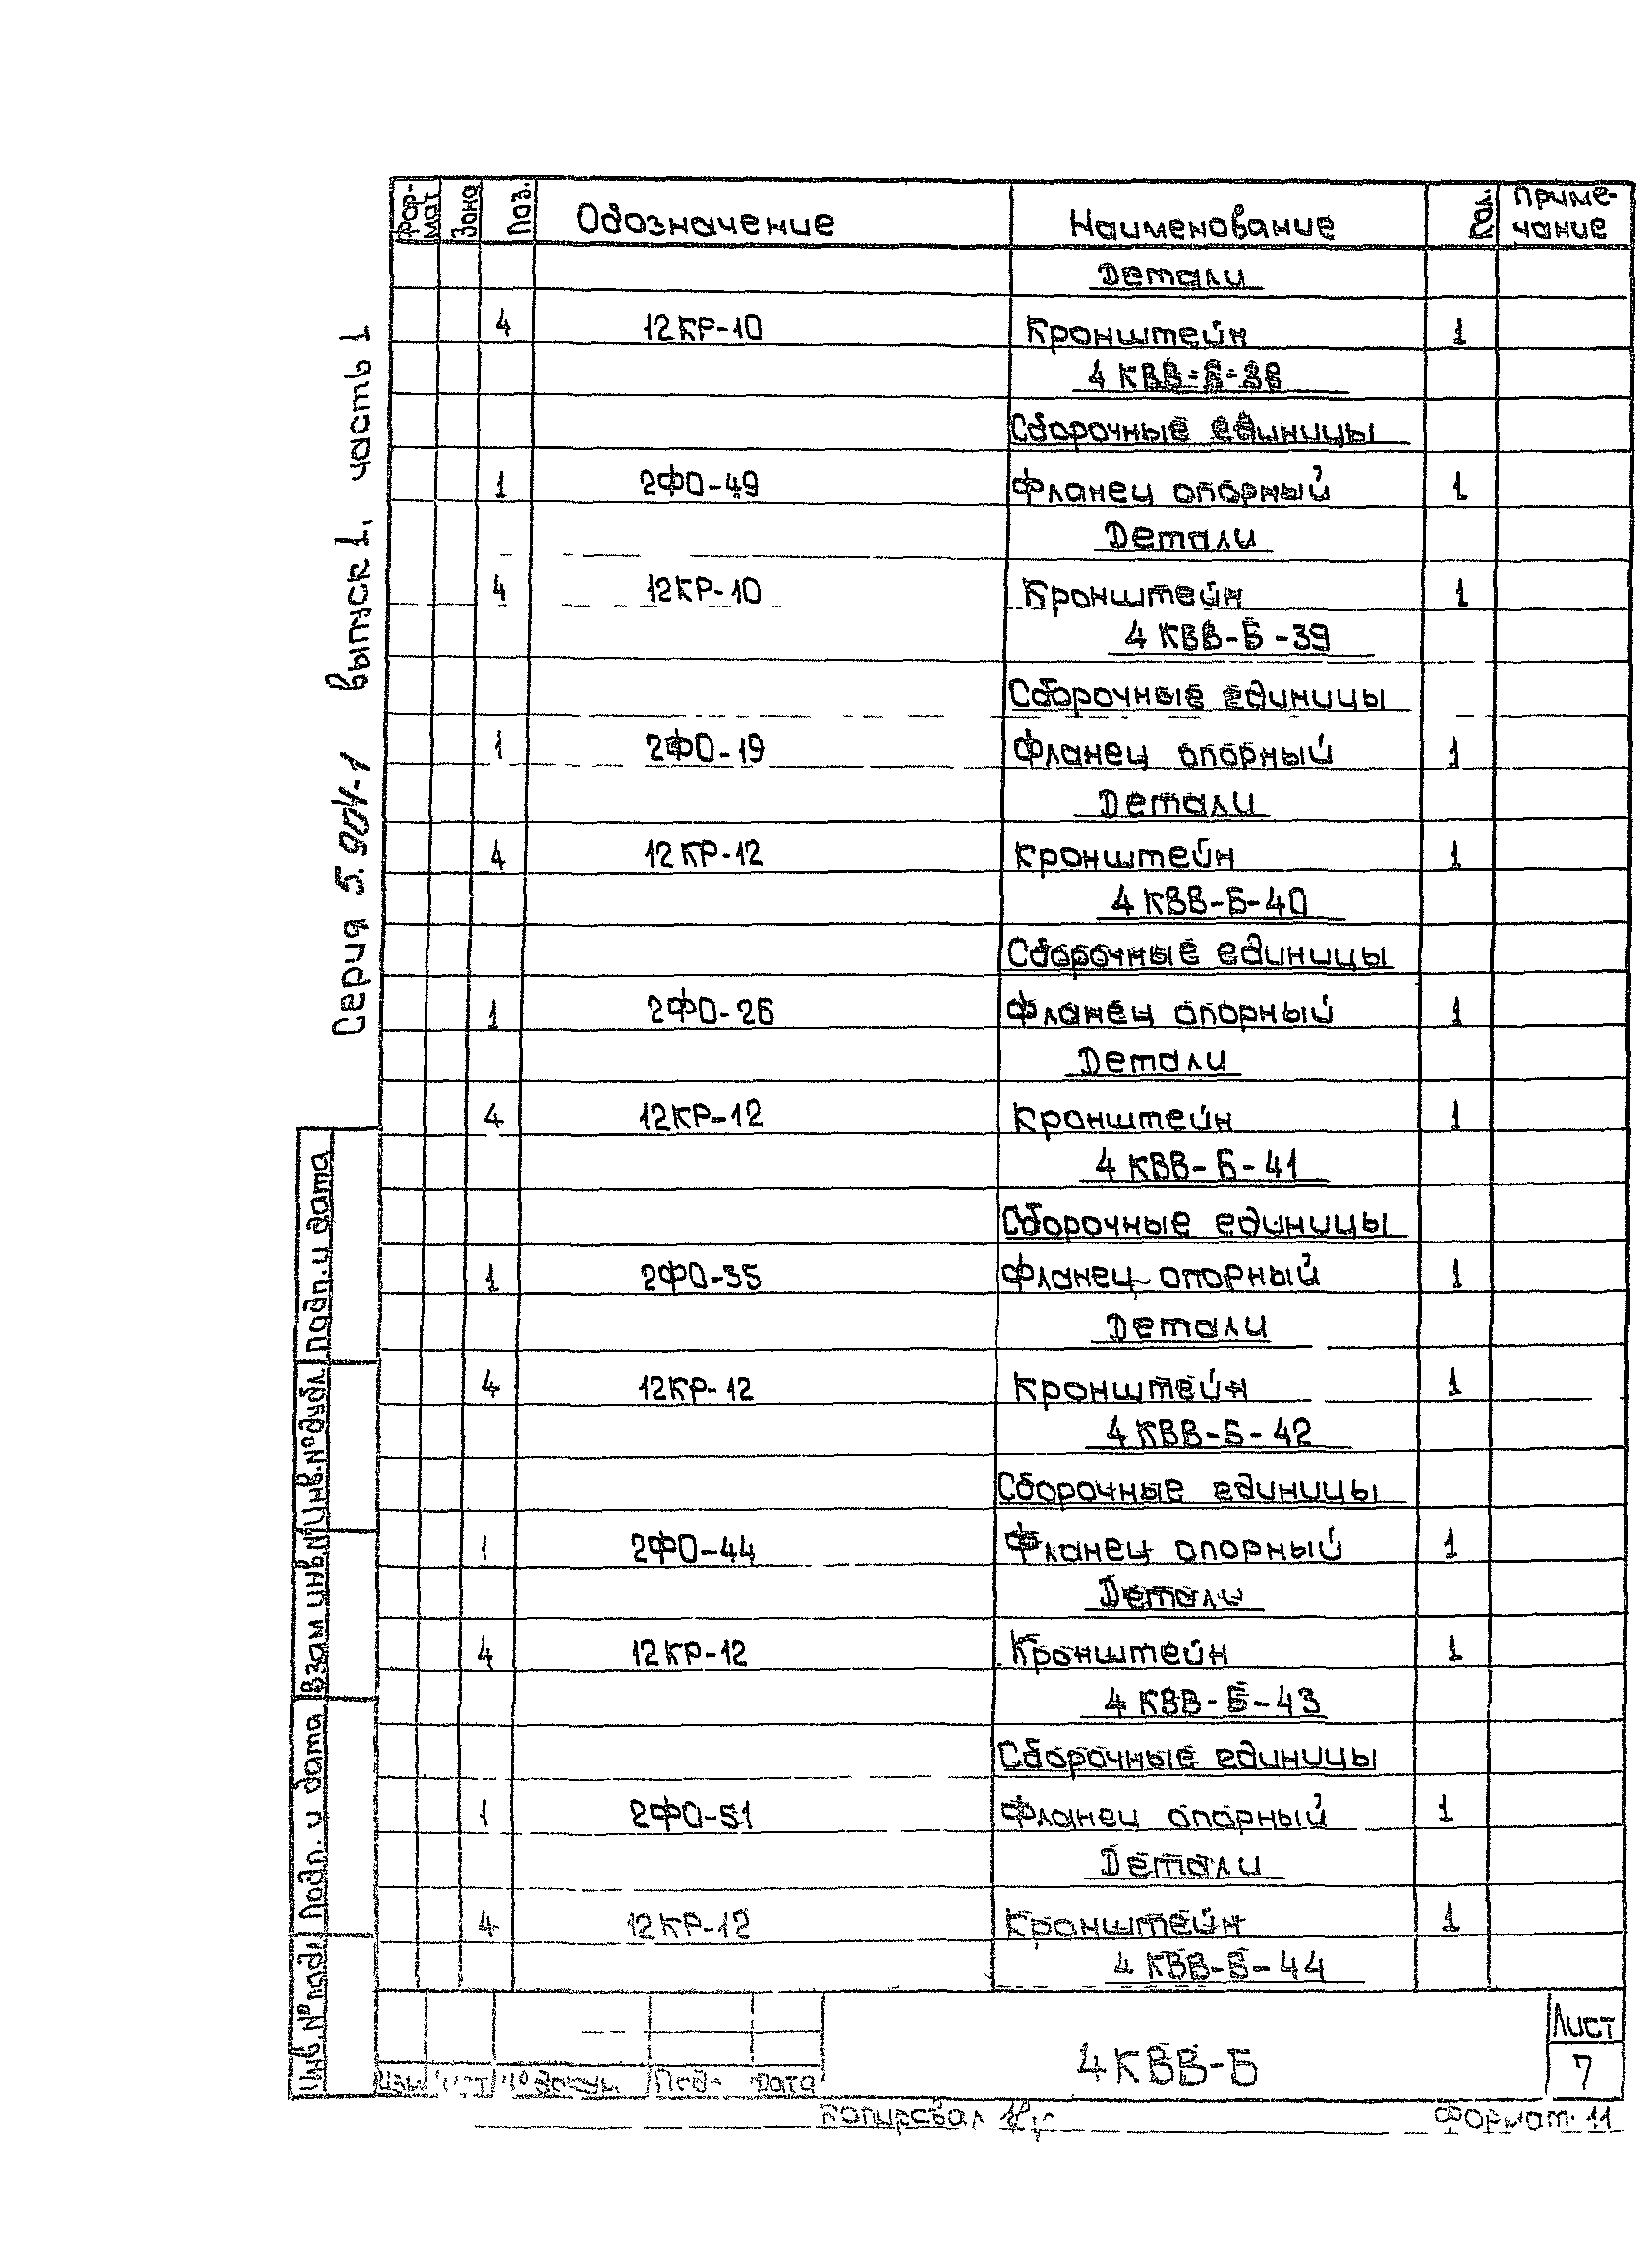 Фор-мат Зона Поз. Обозначение Наименование Кол. Приме-чание
Детали
4 12КР-10 Кронштейн 1
4 КВВ-Б-38
Сборочные единицы
1 2ФО-49 Фланец опорный 1
Детали
4 12КР-10 Кронштейн 1
4 КВВ-Б-39
Сборочные единицы
1 2ФО-19 Фланец опорный 1
Детали
4 12КР-12 Кронштейн 1
4 КВВ-Б-40
Сборочные единицы
1 2ФО-26 Фланец опорный 1
Детали
4 12КР-12 Кронштейн 1
4 КВВ-Б-41
Сборочные единицы
1 2ФО-35 Фланец опорный 1
Детали
4 12КР-12 Кронштейн 1
4 КВВ-Б-42
Сборочные единицы
1 2ФО-44 Фланец опорный 1
Детали
4 12КР-12 Кронштейн 1
4 КВВ-Б-43
Сборочные единицы
1 2ФО-51 Фланец опорный 1
Детали
4 12КР-12 Кронштейн 1
4 КВВ-Б-44
Серия 5.904-1 выпуск 1, часть 1
Подп. и дата
Инв. № дубл.
Взам инв. №
Подп. и дата
Инв. № подл
Дата
4 КВВ-Б
Лист
7
Копировал
Формат 11